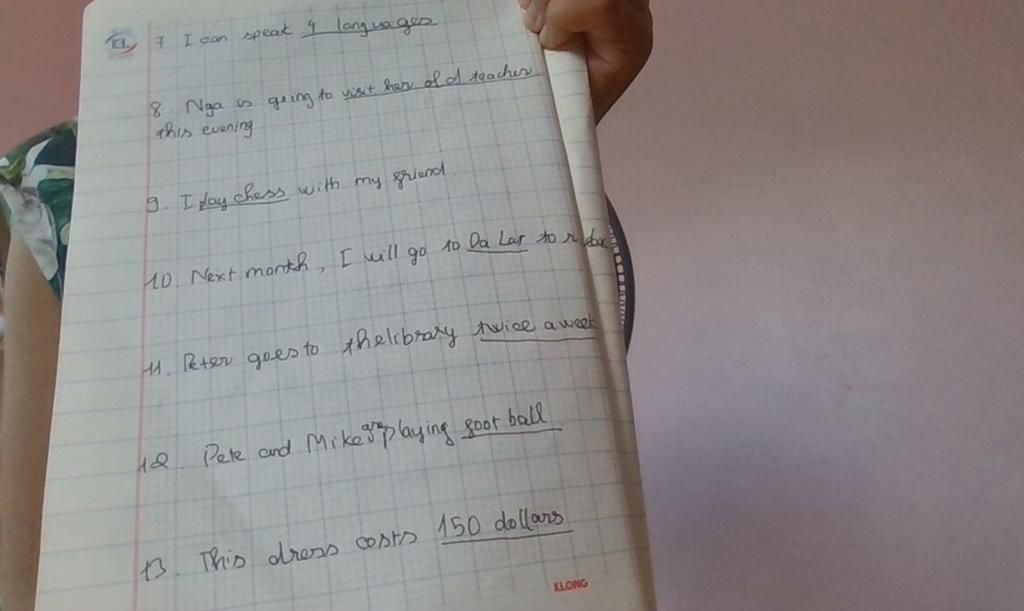 7. I can speak 4 languages
8. Nga is going to visit her old teacher
this evening
9. I play chess with my friend
10. Next month, I will go to Da Lat to
11. Peter goes to the library twice a week
12. Pete and Mike are playing foot ball
13. This dress costs 150 dollars
KLONG